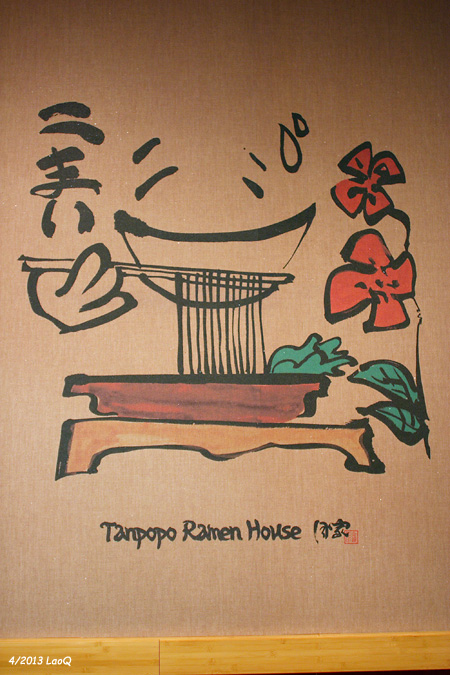 うまい
Tanpopo Ramen House
4/2013 LaoQ